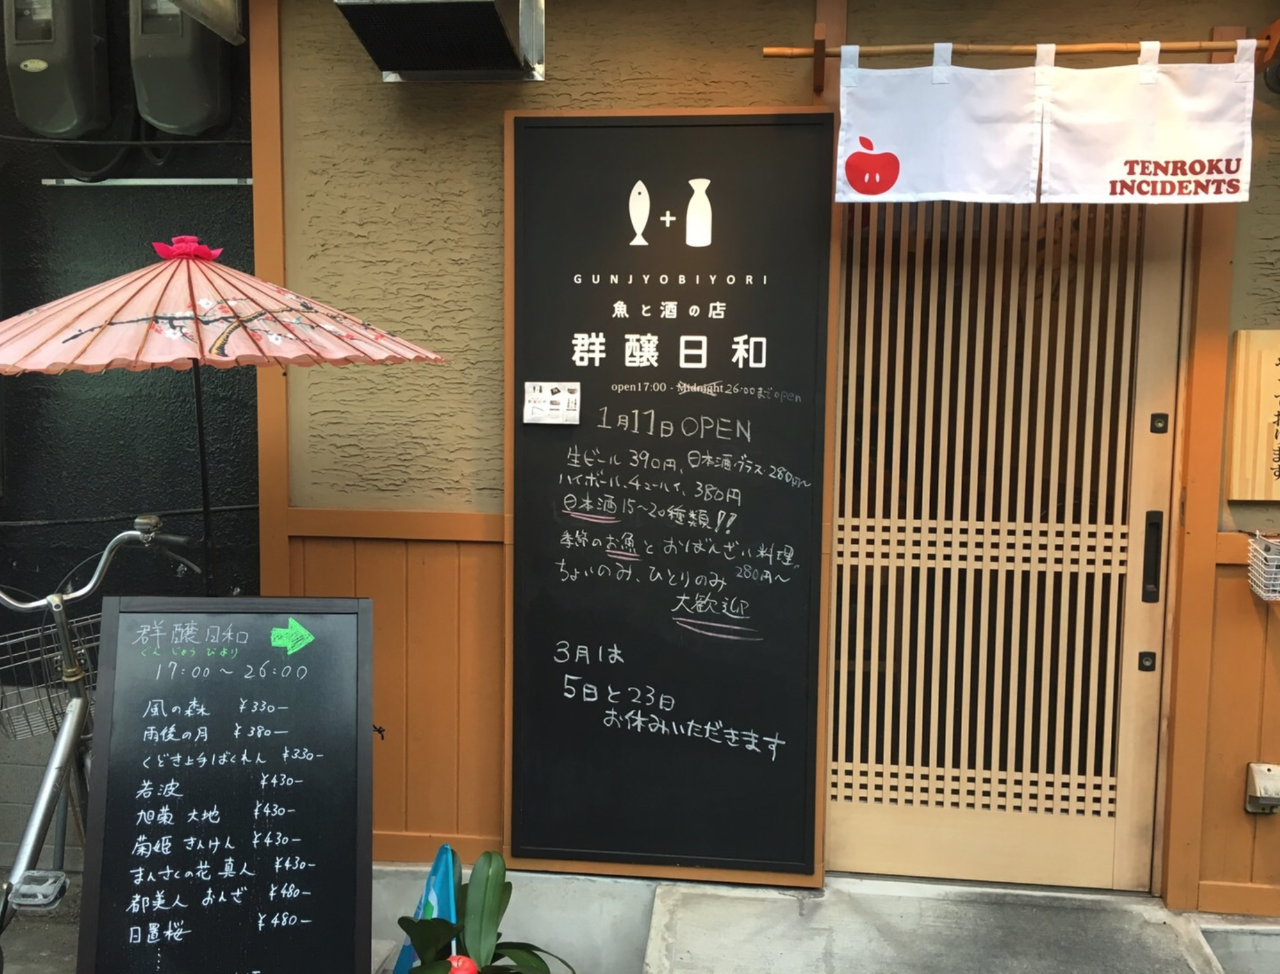 TENROKU
INCIDENTS
GUNJYOBIYORI
魚と酒の店
群醸日和
open17:00 - Midnight 26:00までopen
1月17日OPEN
生ビール 390円、日本酒・グラス・280円〜
ハイボール、チューハイ、380円
日本酒15〜20種類!!
季節のお魚とおばんざい料理。
280円〜
ちょいのみ、ひとりのみ
大歓迎
3月は
5日と23日
お休みいただきます
群醸日和
ぐんじょうびより
17:00〜26:00
風の森 ¥330-
雨後の月 ¥380-
くどき上手ばくれん ¥330-
若波 ¥430-
旭菊 大地 ¥430-
菊姫 きんけん ¥430-
まんさくの花 真人 ¥430-
都美人 おんざ ¥480-
日置桜 ¥480-